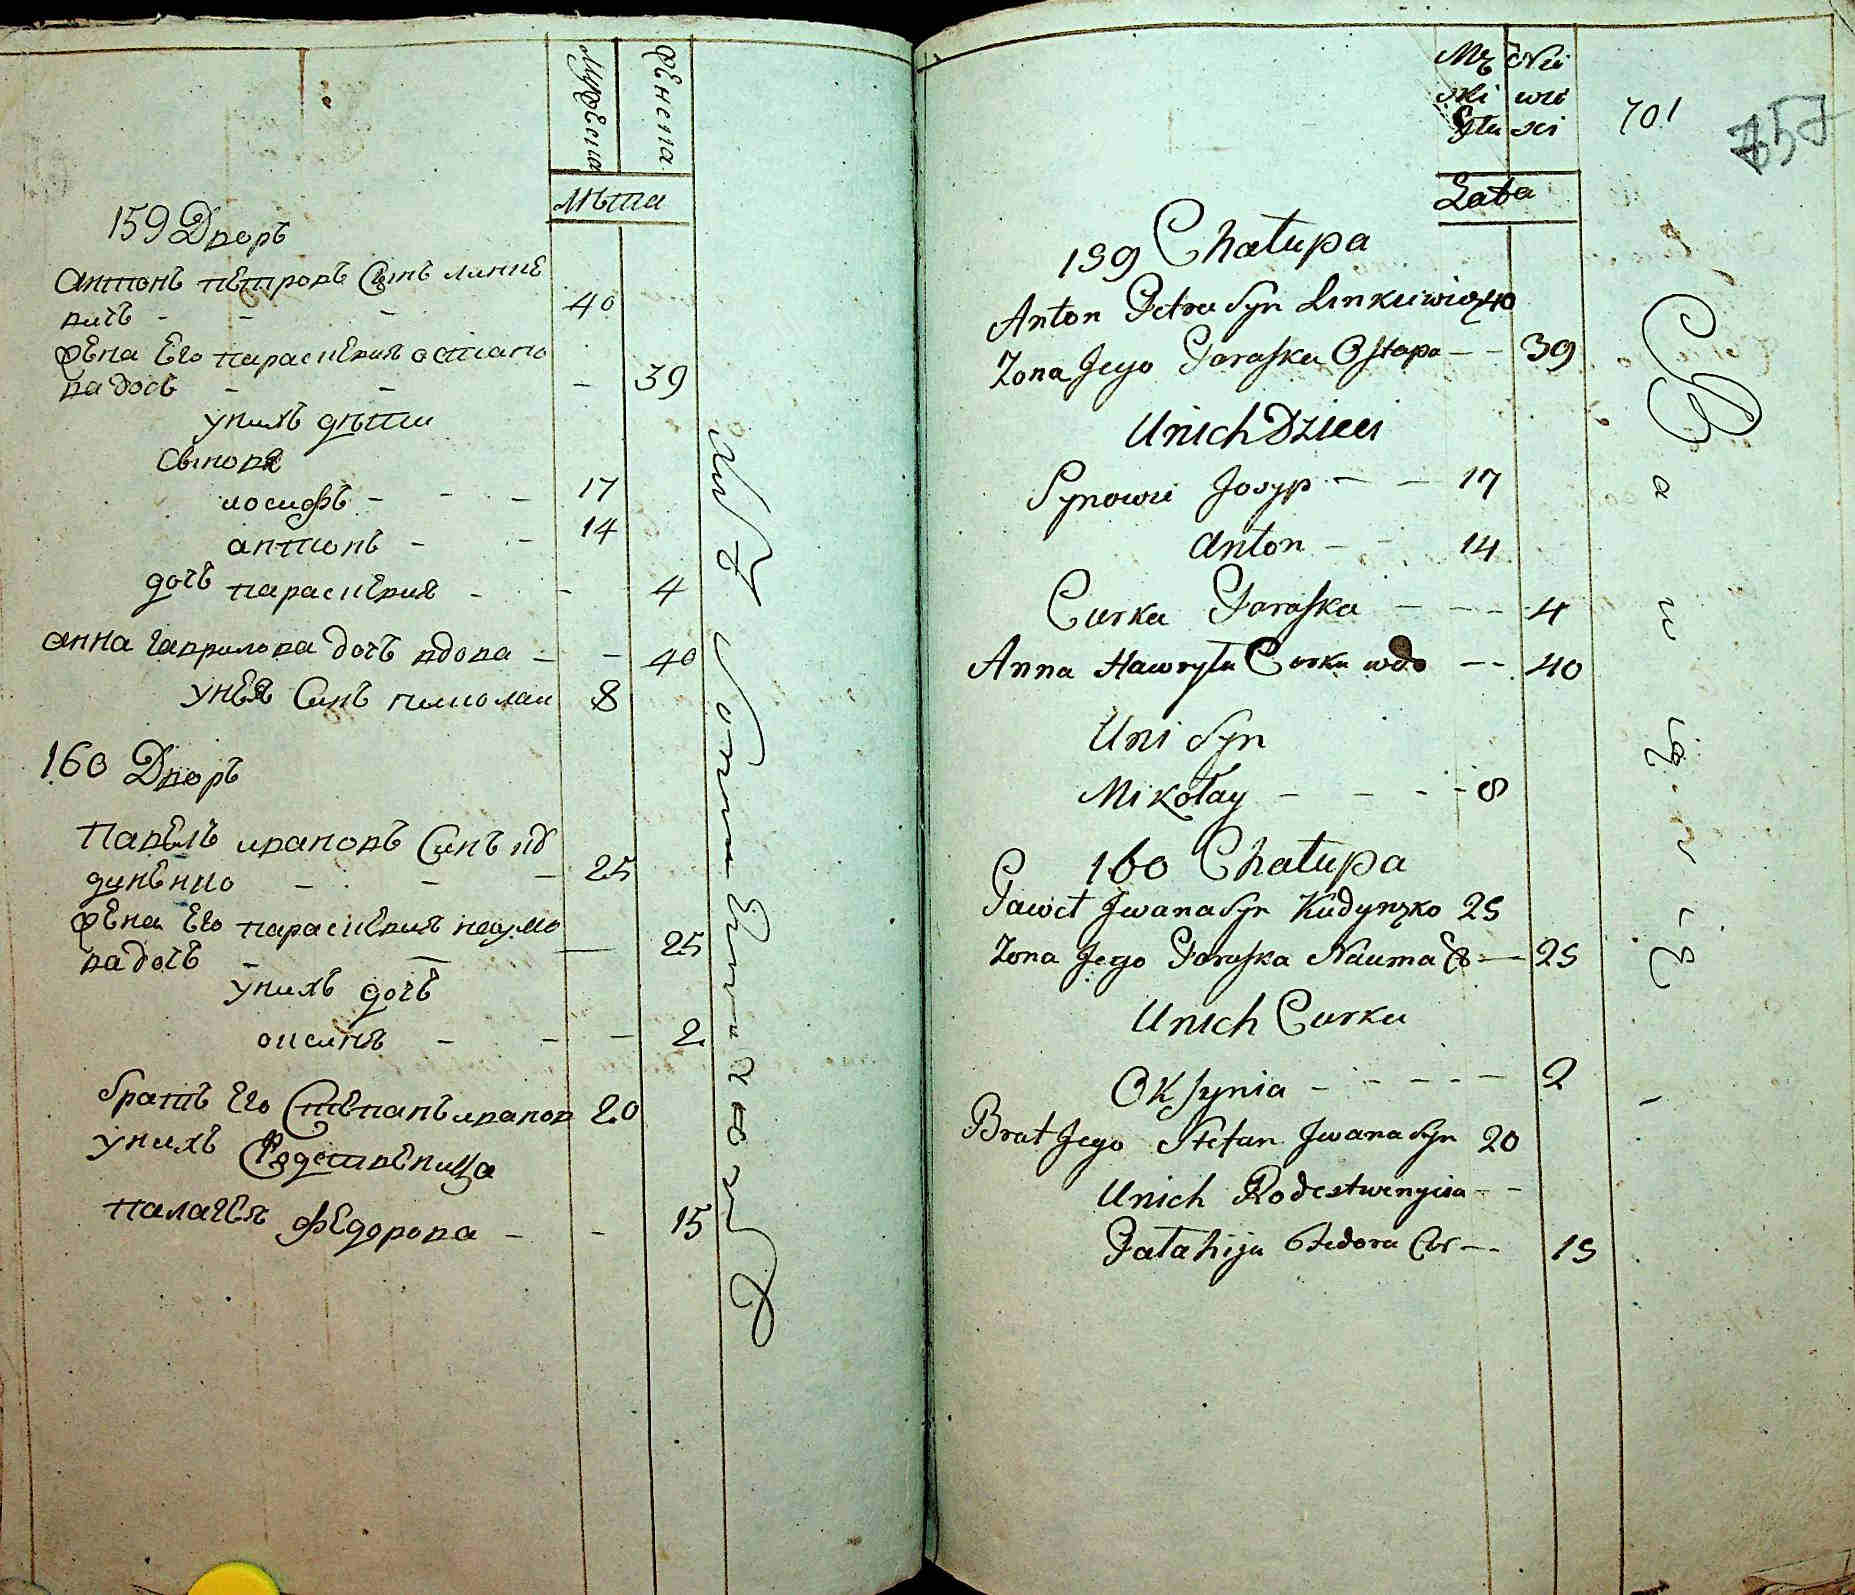 Мужеска
Женска
Лѣта
159 Дворъ
Антонъ петровъ Синъ линке
вичъ - - - 40
Жена Его параскевия остапо
ва дочь - - - 39
у нихъ дѣти
Синовя
иосифъ - - - 17
антонъ - - 14
дочь параскевия - - 4
Анна Гаврилова дочъ вдова - - 40
у нея Синъ николаи 8
160 Дворъ
Павелъ ивановъ Синъ ку
диненко - - - 25
Жена Его параскевия наумо
ва дочъ - - 25
у нихъ дочъ
оксиня - - - 2
братъ Его Степанъ иванов 20
у нихъ Родственица
палагея федорова - - 15
Męzkij Niewieści
Płci
Lata
701
757
159 Chałupa
Anton Petra Syn Linkiewicz 40
Zona Jego Paraska Ostapa - - 39
U nich Dzieci
Synowie Josyp - - 17
Anton - - 14
Curka Paraska - - - - 4
Anna Hawryła Curka wdo - - 40
U ni Syn
Mikołay - - - - 8
160 Chałupa
Paweł Jwana Syn Kudynzko 25
Zona Jego Paraska Nauma C - 25
U nich Curka
Oksynia - - - - - 2
Brat Jego Stefan Jwana Syn 20
U nich Rodestwenyca - -
Pałahija Fedora Cur - - 15